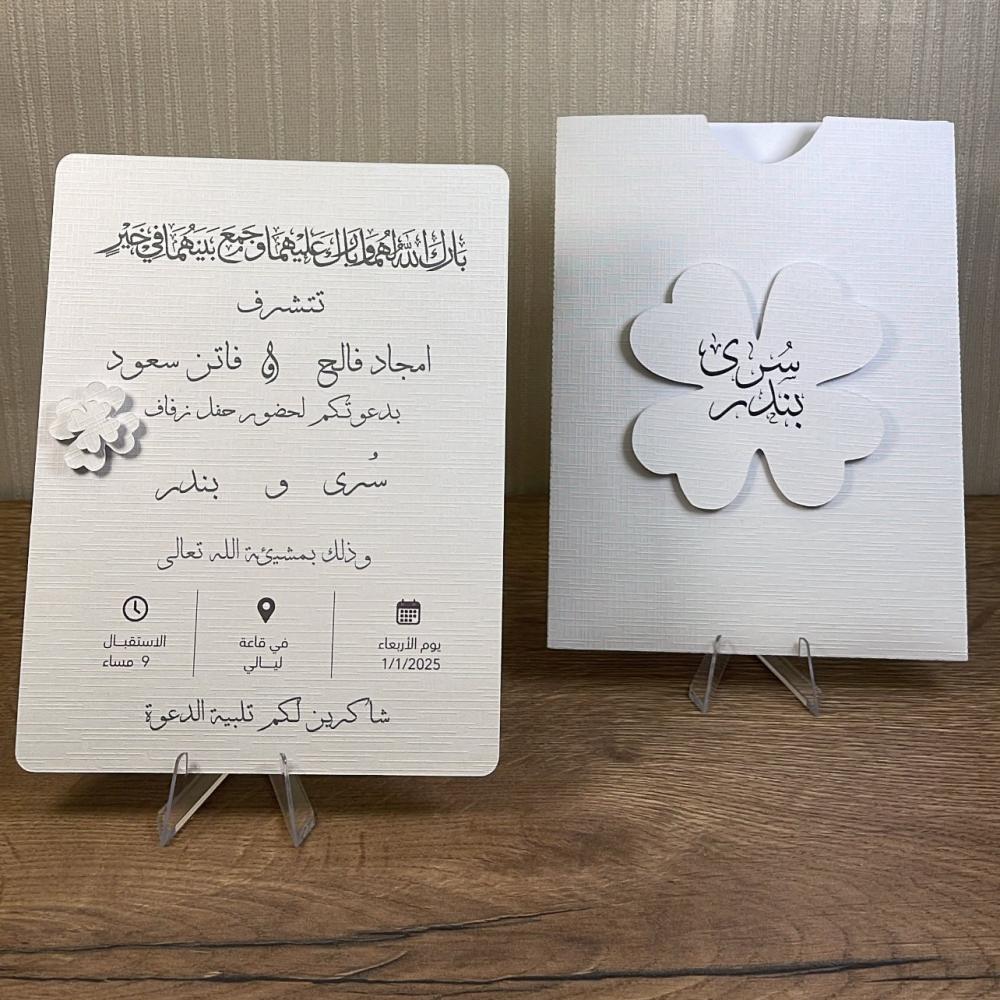 بَارَكَ اللهُ لَهُمَا وَبَارَكَ عَلَيْهِمَا وَجَمَعَ بَيْنَهُمَا فِي خَيْرٍ
تتشرف
امجاد فالح و فاتن سعود
بدعوتكم لحضور حفل زفاف
سُرى و بندر
وذلك بمشيئة الله تعالى
يوم الأربعاء
1/1/2025
في قاعة
ليـالي
الاستقبـال
9 مساء
شاكرين لكم تلبية الدعوة
سُرى
بندر